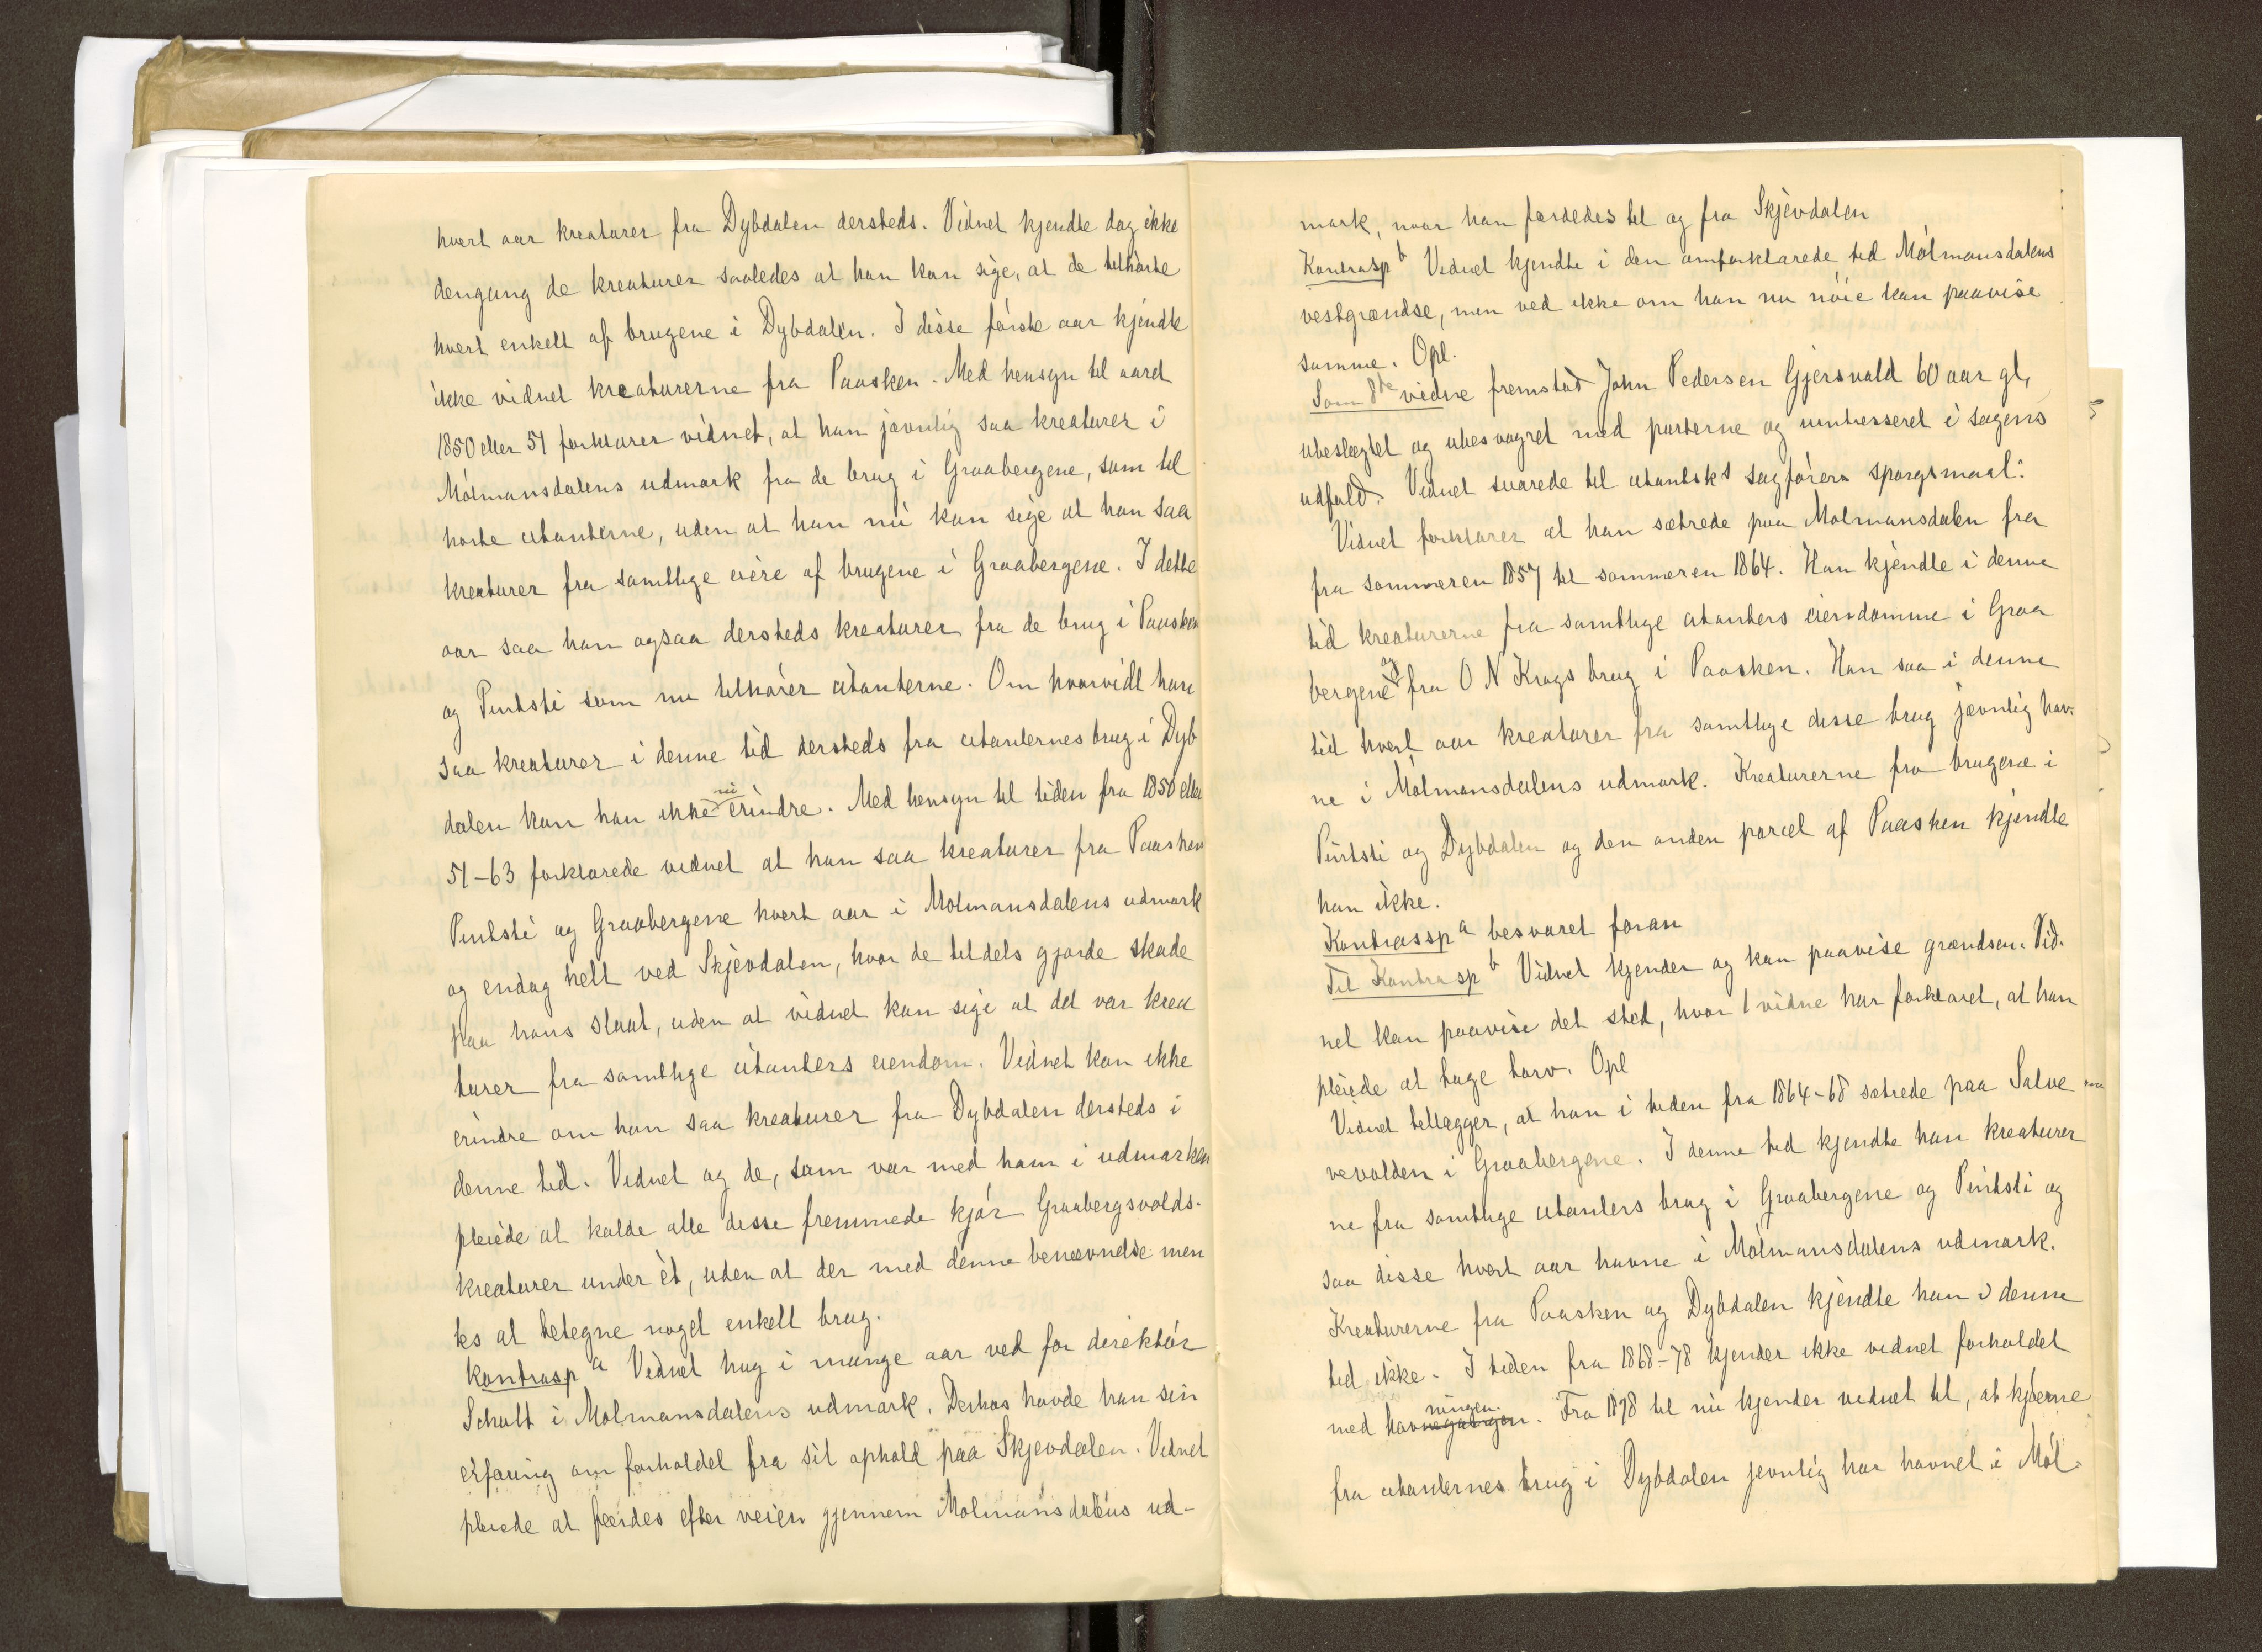 hvert aar kreaturer fra Dybdalen dersteds. Vidnet kjendte dog ikke
dengang de kreaturer saaledes at han kan sige, at de tilhørte
hvert enkelt af brugene i Dybdalen. I disse første aar kjendte
ikke vidnet kreaturerne fra Paasken. Med hensyn til aaret
1850 eller 51 forklarer vidnet, at han jævnlig saa kreaturer i
Mølmansdalens udmark fra de brug i Graabergene, som til
hørte citanterne, uden at han nu kan sige at han saa
kreaturer fra samtlige eiere af brugene i Graabergene. I dette
aar saa han ogsaa dersteds kreaturer fra de brug i Paasken
og Pintsti som nu tilhører citanterne. Om hvorvidt han
saa kreaturer i denne tid dersteds fra citanternes brug i Dyb
dalen kan han ikke nu erindre. Med hensyn til tiden fra 1850 eller
51-63 forklarede vidnet at han saa kreaturer fra Paasken
Pintsti og Graabergene hvert aar i Mølmansdalens udmark
og endog helt ved Skjevdalen, hvor de tildels gjorde skade
paa hans slaat, uden at vidnet kan sige at det var krea
turer fra samtlige citanters eiendom. Vidnet kan ikke
erindre om han saa kreaturer fra Dybdalen dersteds i
denne tid. Vidnet og de, som var med ham i udmarken
pleiede at kalde alle disse fremmede kjør Graabergsvolds-
kreaturer under èt, uden at der med denne benævnelse men
tes at betegne noget enkelt brug.
Kontrasp a Vidnet hug i mange aar ved for direktør
Schult i Mølmansdalens udmark. Derhos havde han sin
erfaring om forholdet fra sit ophold paa Skjevdalen. Vidnet
pleiede at færdes efter veien gjennem Mølmansdalens ud-
mark, naar han færdedes til og fra Skjevdalen
Kontrasp b Vidnet kjendte i den omforklarede tid Mølmansdalens
vestgrændse, men ved ikke om han nu nøie kan paavise
samme. Opl.
Som 8de vidne fremstod John Pedersen Gjersvold 60 aar gl,
ubeslægtet og ubesvogret med parterne og uintresseret i sagens
udfald. Vidnet svarede til citantsks sagførers spørgsmaal:
Vidnet forklarer at han sætrede paa Mølmansdalen fra
fra sommeren 1857 til sommeren 1864. Han kjendte i denne
tid kreaturerne fra samtlige citanters eiendomme i Graa
bergene og fra O N Krogs brug i Paasken. Han saa i denne
tid hvert aar kreaturer fra samtlige disse brug jævnlig hav-
ne i Mølmansdalens udmark. Kreaturerne fra brugene i
Pintsti og Dybdalen og den anden parcel af Paasken kjendte
han ikke.
Kontrassp a besvaret foran
Til Kontrasp b Vidnet kjender og kan paavise grændsen. Vid-
net kan paavise det sted, hvor 1 vidne har forklaret, at han
pleiede at tage torv. Opl
Vidnet tillægger, at han i tiden fra 1864-68 sætrede paa Salve
vevolden i Graabergene. I denne tid kjendte han kreaturer
ne fra samtlige citanters brug i Graabergene og Pintsti og
saa disse hvert aar havne i Mølmansdalens udmark.
Kreaturerne fra Paasken og Dybdalen kjendte han i denne
tid ikke. I tiden fra 1868-78 kjender ikke vidnet forholdet
med havnegangen ningen. Fra 1878 til nu kjender vidnet til, at kjøerne
fra citanternes brug i Dybdalen jevnlig har havnet i Møl-